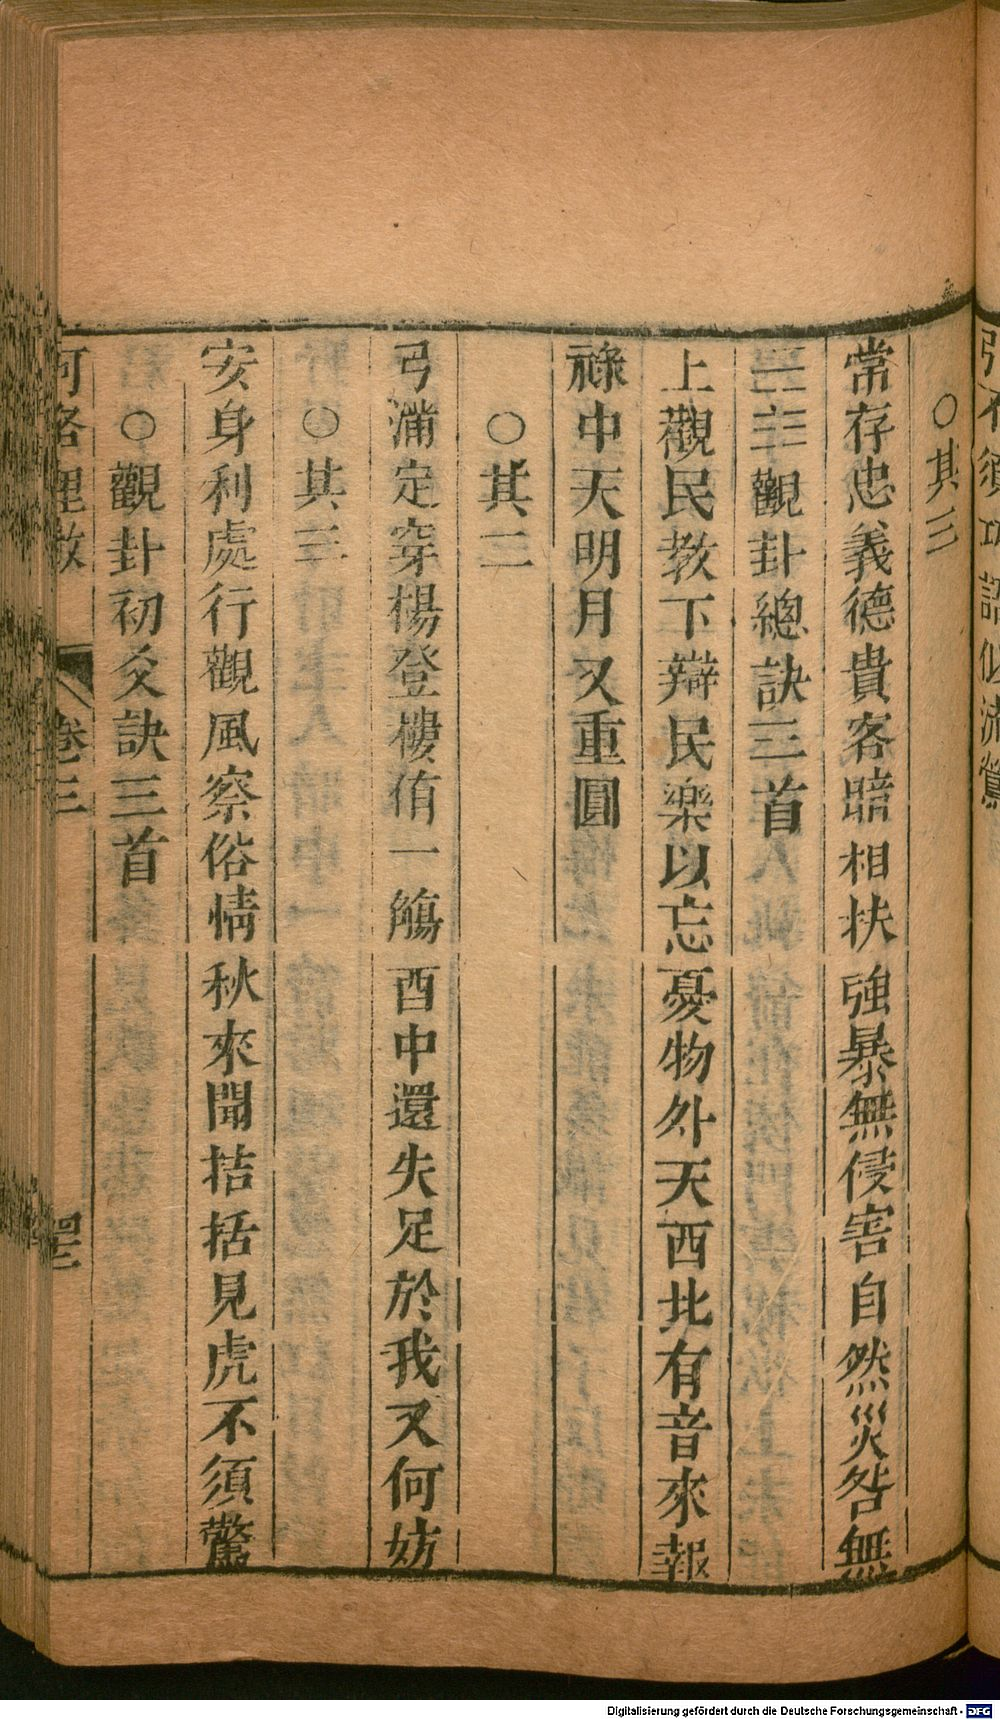 ○其三
常存忠義德貴客暗相扶強暴無侵害自然災咎無
觀卦總訣三首
上觀民教下辯民樂以忘憂物外天西北有音來報
祿中天明月又重圓
○其二
弓滿定穿楊登樓侑一觴酉中還失足於我又何妨
○其三
安身利處行觀風察俗情秋來聞拮括見虎不須驚
○觀卦初爻訣三首
河洛理數 卷三
Digitalisierung gefördert durch die Deutsche Forschungsgemeinschaft - DFG